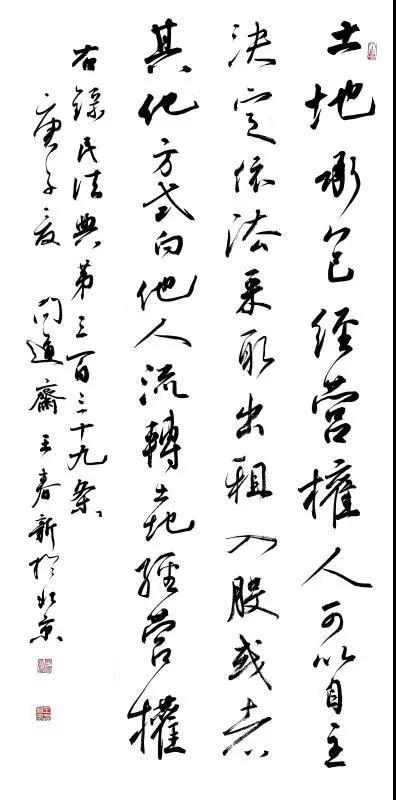 土地承包經营權人可以自主
决定依法采取出租入股或者
其他方式向他人流轉土地經营權
右錄民法典第三百三十九条
庚子夏 問道齋王春新於北京